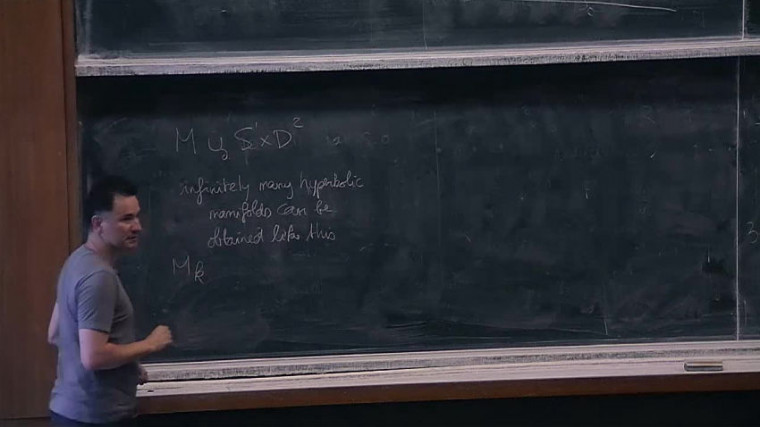 M ∪ S¹×D²
infinitely many hyperbolic
manifolds can be
obtained like this
M_k
3